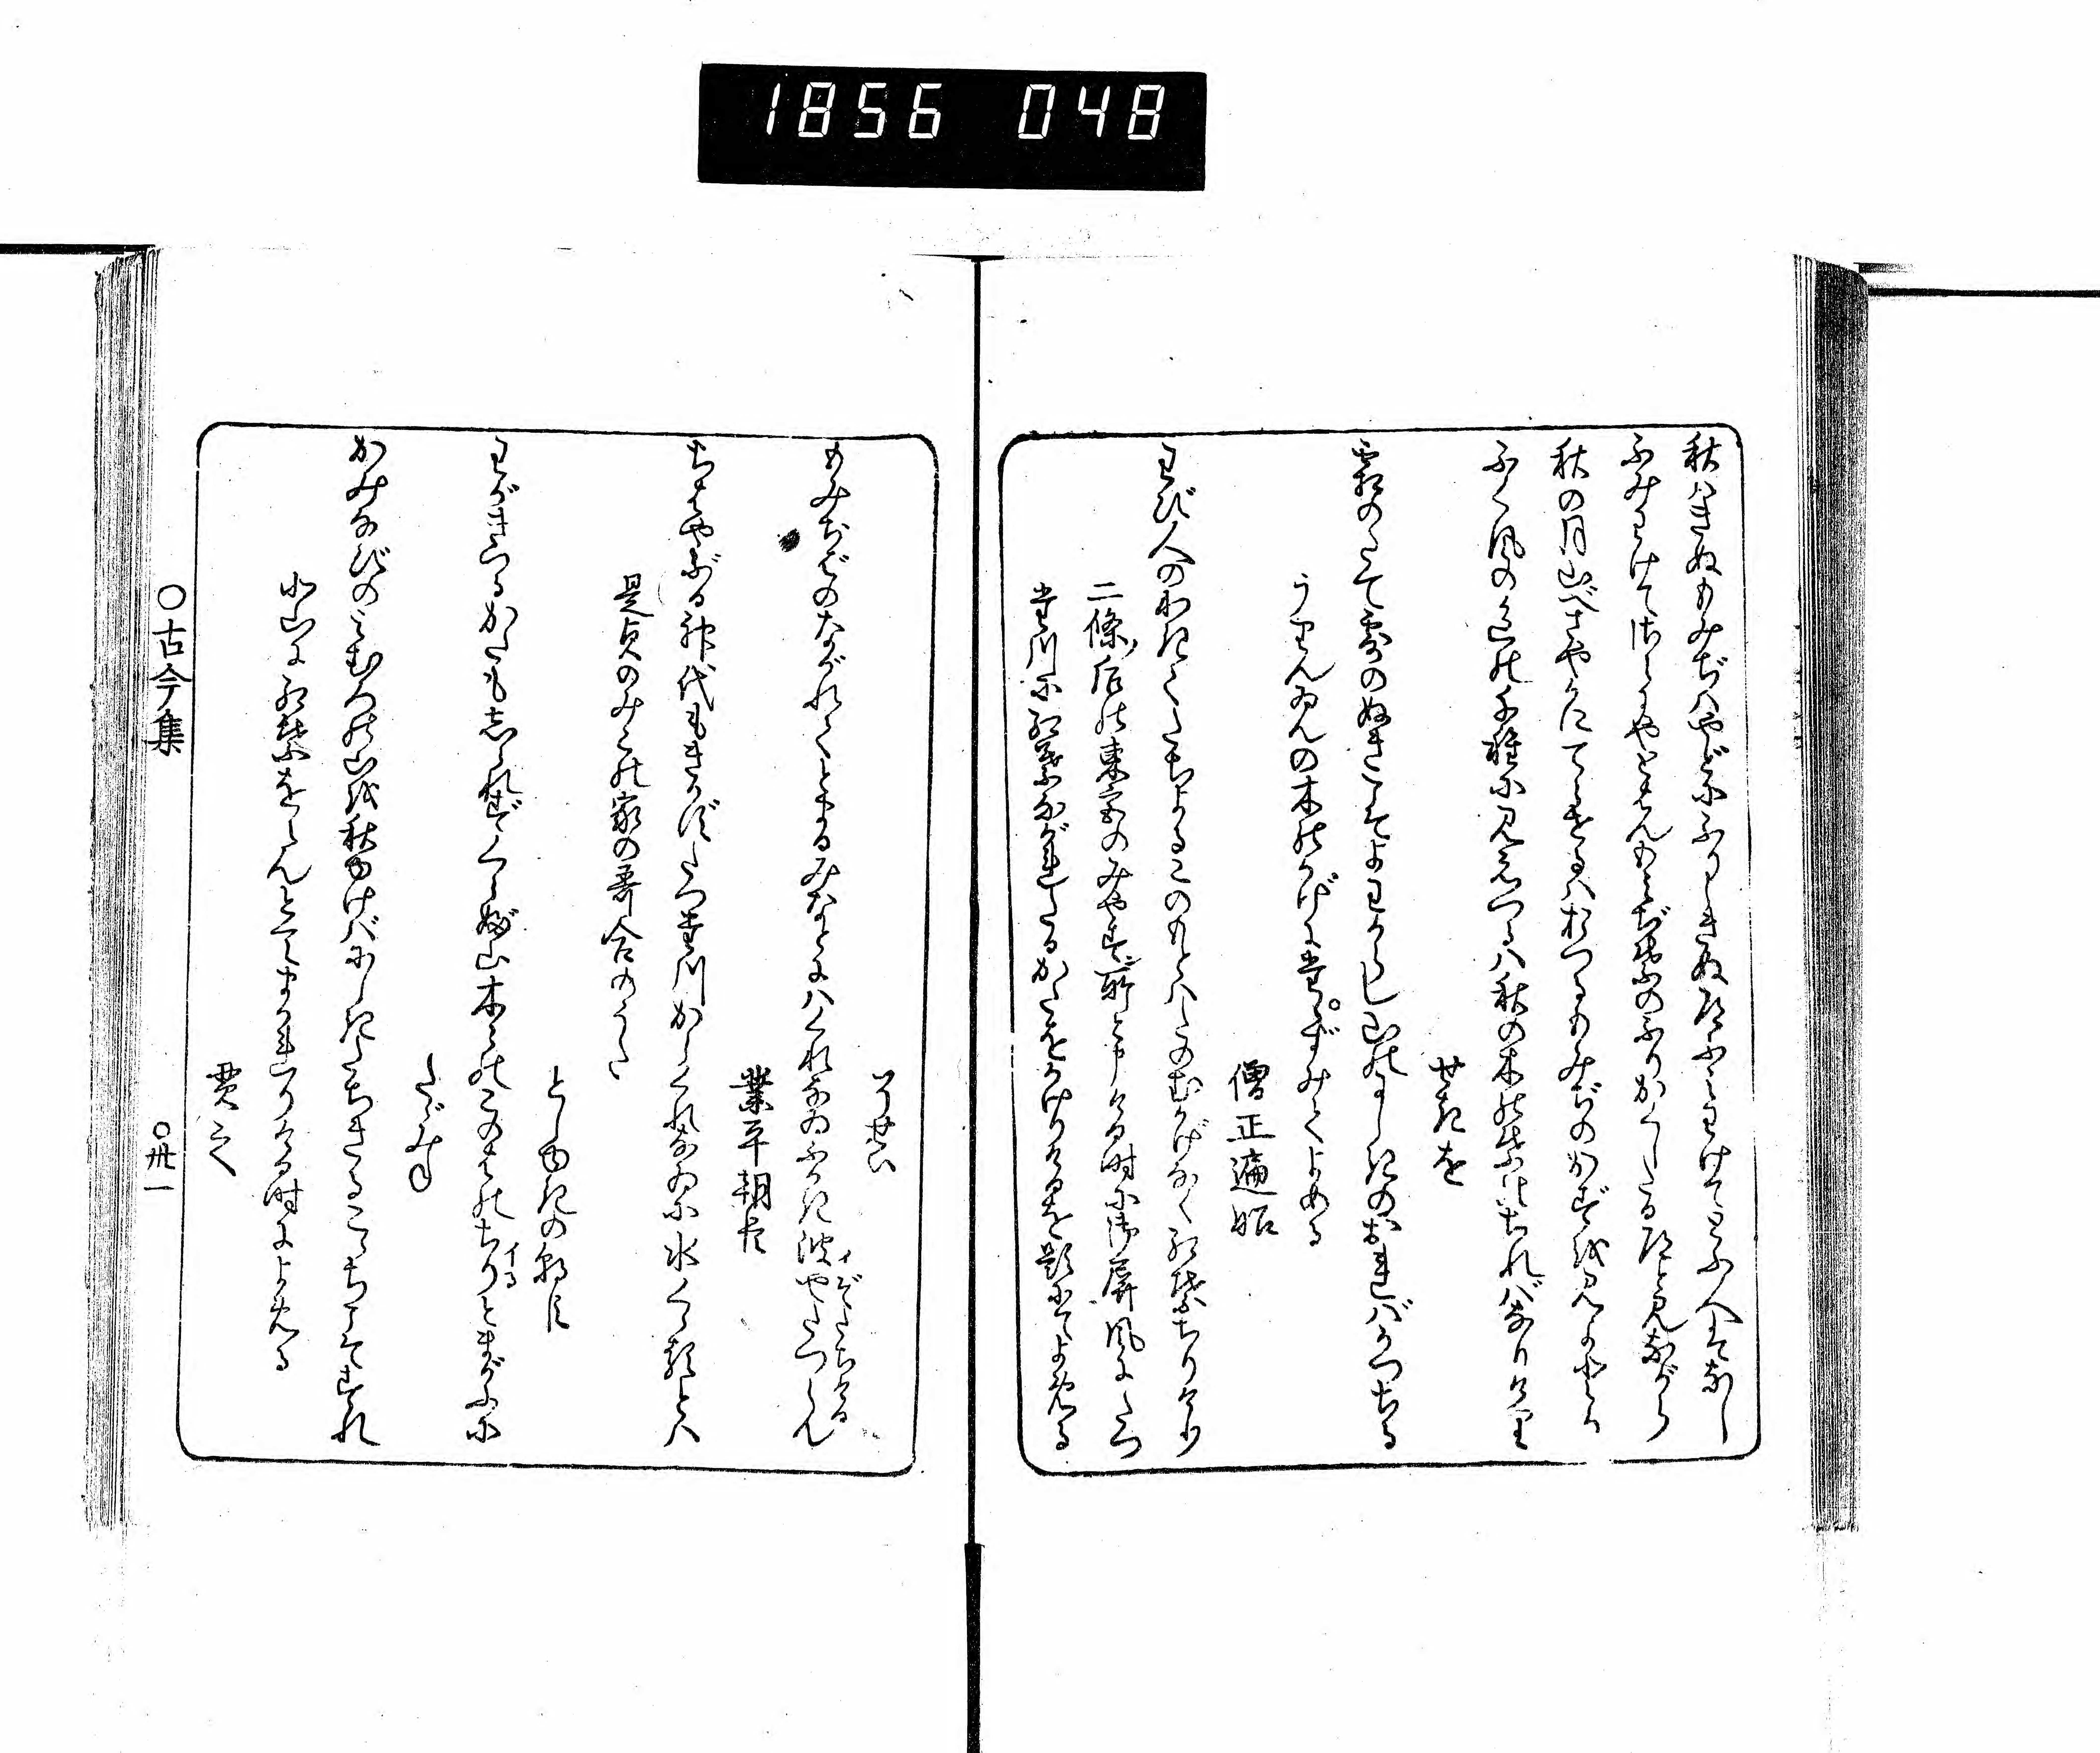 1856 048
秋はきぬもみぢはやどにふりしきぬ道ふみわけてとふ人はなし
ふみわけてさらにやとはんもみぢ葉のふりかくしたる道と見ながら
秋の月山べさやかにてらせるはおつるもみぢのかずを見よとか
ふく風の色の千種に見えつるは秋の木の葉のちればなりけり
せきを
霜のたて露のぬきこそよわからし山のにしきのおればかつちる
うりんゐんの木のかげにたゝずみてよめる
僧正遍昭
わび人のわきてたちよるこのもとはたのむかげなく紅葉ちりけり
二條ノ后の東宮のみやす所と申ける時に御屏風にたつ
た川に紅葉ながれたるかたをかけりけるを題にてよめる
そせい
もみぢばのながれてとまるみなとにはくれなゐふかき波やたつらん
イぞたちける
業平朝臣
ちはやぶる神代もきかずたつた川からくれなゐに水くゝるとは
是貞のみこの家の哥合のうた
としゆきの朝臣
わがきつるかたもしられずくらぶ山木ゝのこのはのちりとまがふに
イる
たゞみね
かみなびのみむろの山を秋ゆけばにしきたちきるこゝちこそすれ
北山に紅葉をらんとてまかれりける時によめる
貫之
○古今集
○卅一